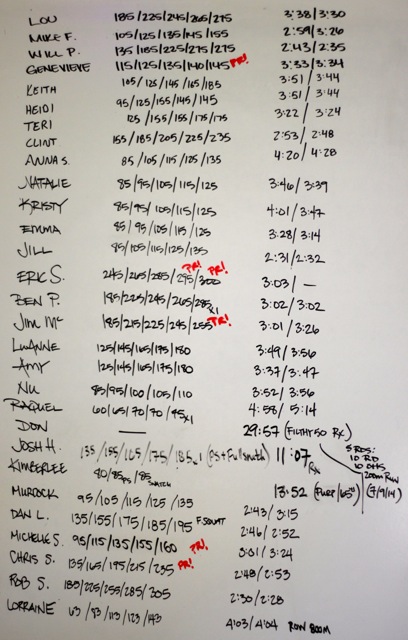 LOU 185/225/245/265/275 3:38/3:30
MIKE F. 105/125/135/145/155 2:59/3:26
WILL P. 135/185/225/275/275 2:43/2:35
GENEVIEVE 115/125/135/140/145 PR! 3:33/3:34
KEITH 105/125/145/165/185 3:51/3:44
HEIDI 95/125/155/145/145 3:51/3:44
TERI 125/155/155/175/175 3:22/3:24
CLINT 155/185/205/225/235 2:53/2:48
ANNA S. 85/105/115/125/135 4:20/4:28
NATALIE 85/95/105/115/125 3:46/3:39
KRISTY 85/95/105/115/125 4:01/3:47
EMMA 85/95/105/115/125 3:28/3:14
JILL 85/105/115/125/135 2:31/2:32
ERIC S. 245/265/285/295/300 PR! PR! 3:03/—
BEN P. 185/225/245/265/285 x1 3:02/3:02
JIM MC 185/215/225/245/255 PR! 3:01/3:26
LUANNE 125/145/165/175/180 3:49/3:56
AMY 125/145/165/175/180 3:37/3:47
NU 85/95/100/105/110 3:52/3:56
RAQUEL 60/65/70/70/95x1 4:58/5:14
DON — 29:57 (FILTHY 50 RX)
JOSH H. 135/155/165/175/185x1 (PS+Full snatch) 11:07 RX
5 RDS:
10 RD
10 OHS
200m RUN
(7/9/14)
KIMBERLEE 80/85 PS/85 SNATCH 13:52
MURDOCK 95/105/115/125/135 2:43/3:15
DAN L. 135/155/175/185/195 F. SQUAT 2:46/2:52
MICHELLE S. 95/115/135/155/160 PR! 3:01/3:24
CHRIS S. 135/165/195/215/235 PR! 2:48/2:53
ROB S. 185/225/255/285/305 2:30/2:28
LORRAINE 63/83/113/123/143 4:03/4:04 ROW 500M